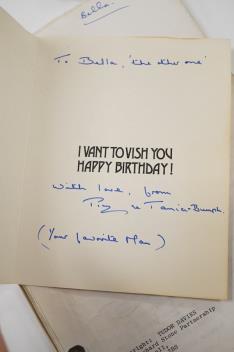 Bella.
To Bella, 'the other one'
I VANT TO VISH YOU
HAPPY BIRTHDAY!
With love, from
(Your favorite Man)
TUDOR DAVIES
Stone Partnership